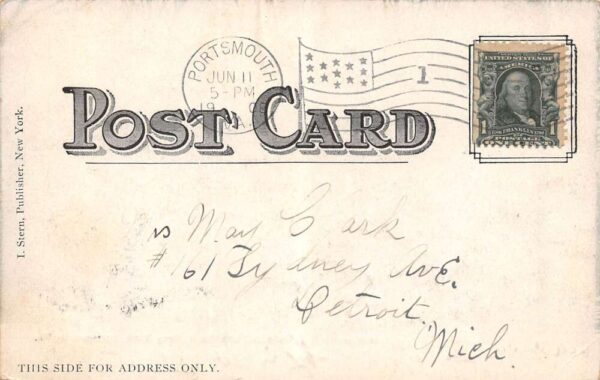 PORTSMOUTH
JUN 11
5-PM
19
A.
1
UNITED STATES OF AMERICA
1 FRANKLIN 1
POSTAGE
POST CARD
I. Stern, Publisher, New York.
May Clark
#161 Sydney Ave.
Detroit
Mich.
THIS SIDE FOR ADDRESS ONLY.